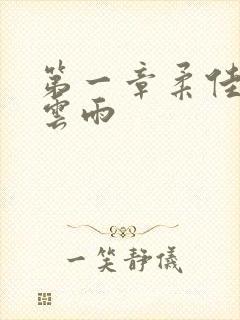 第一章柔佳
雲雨
一笑靜儀